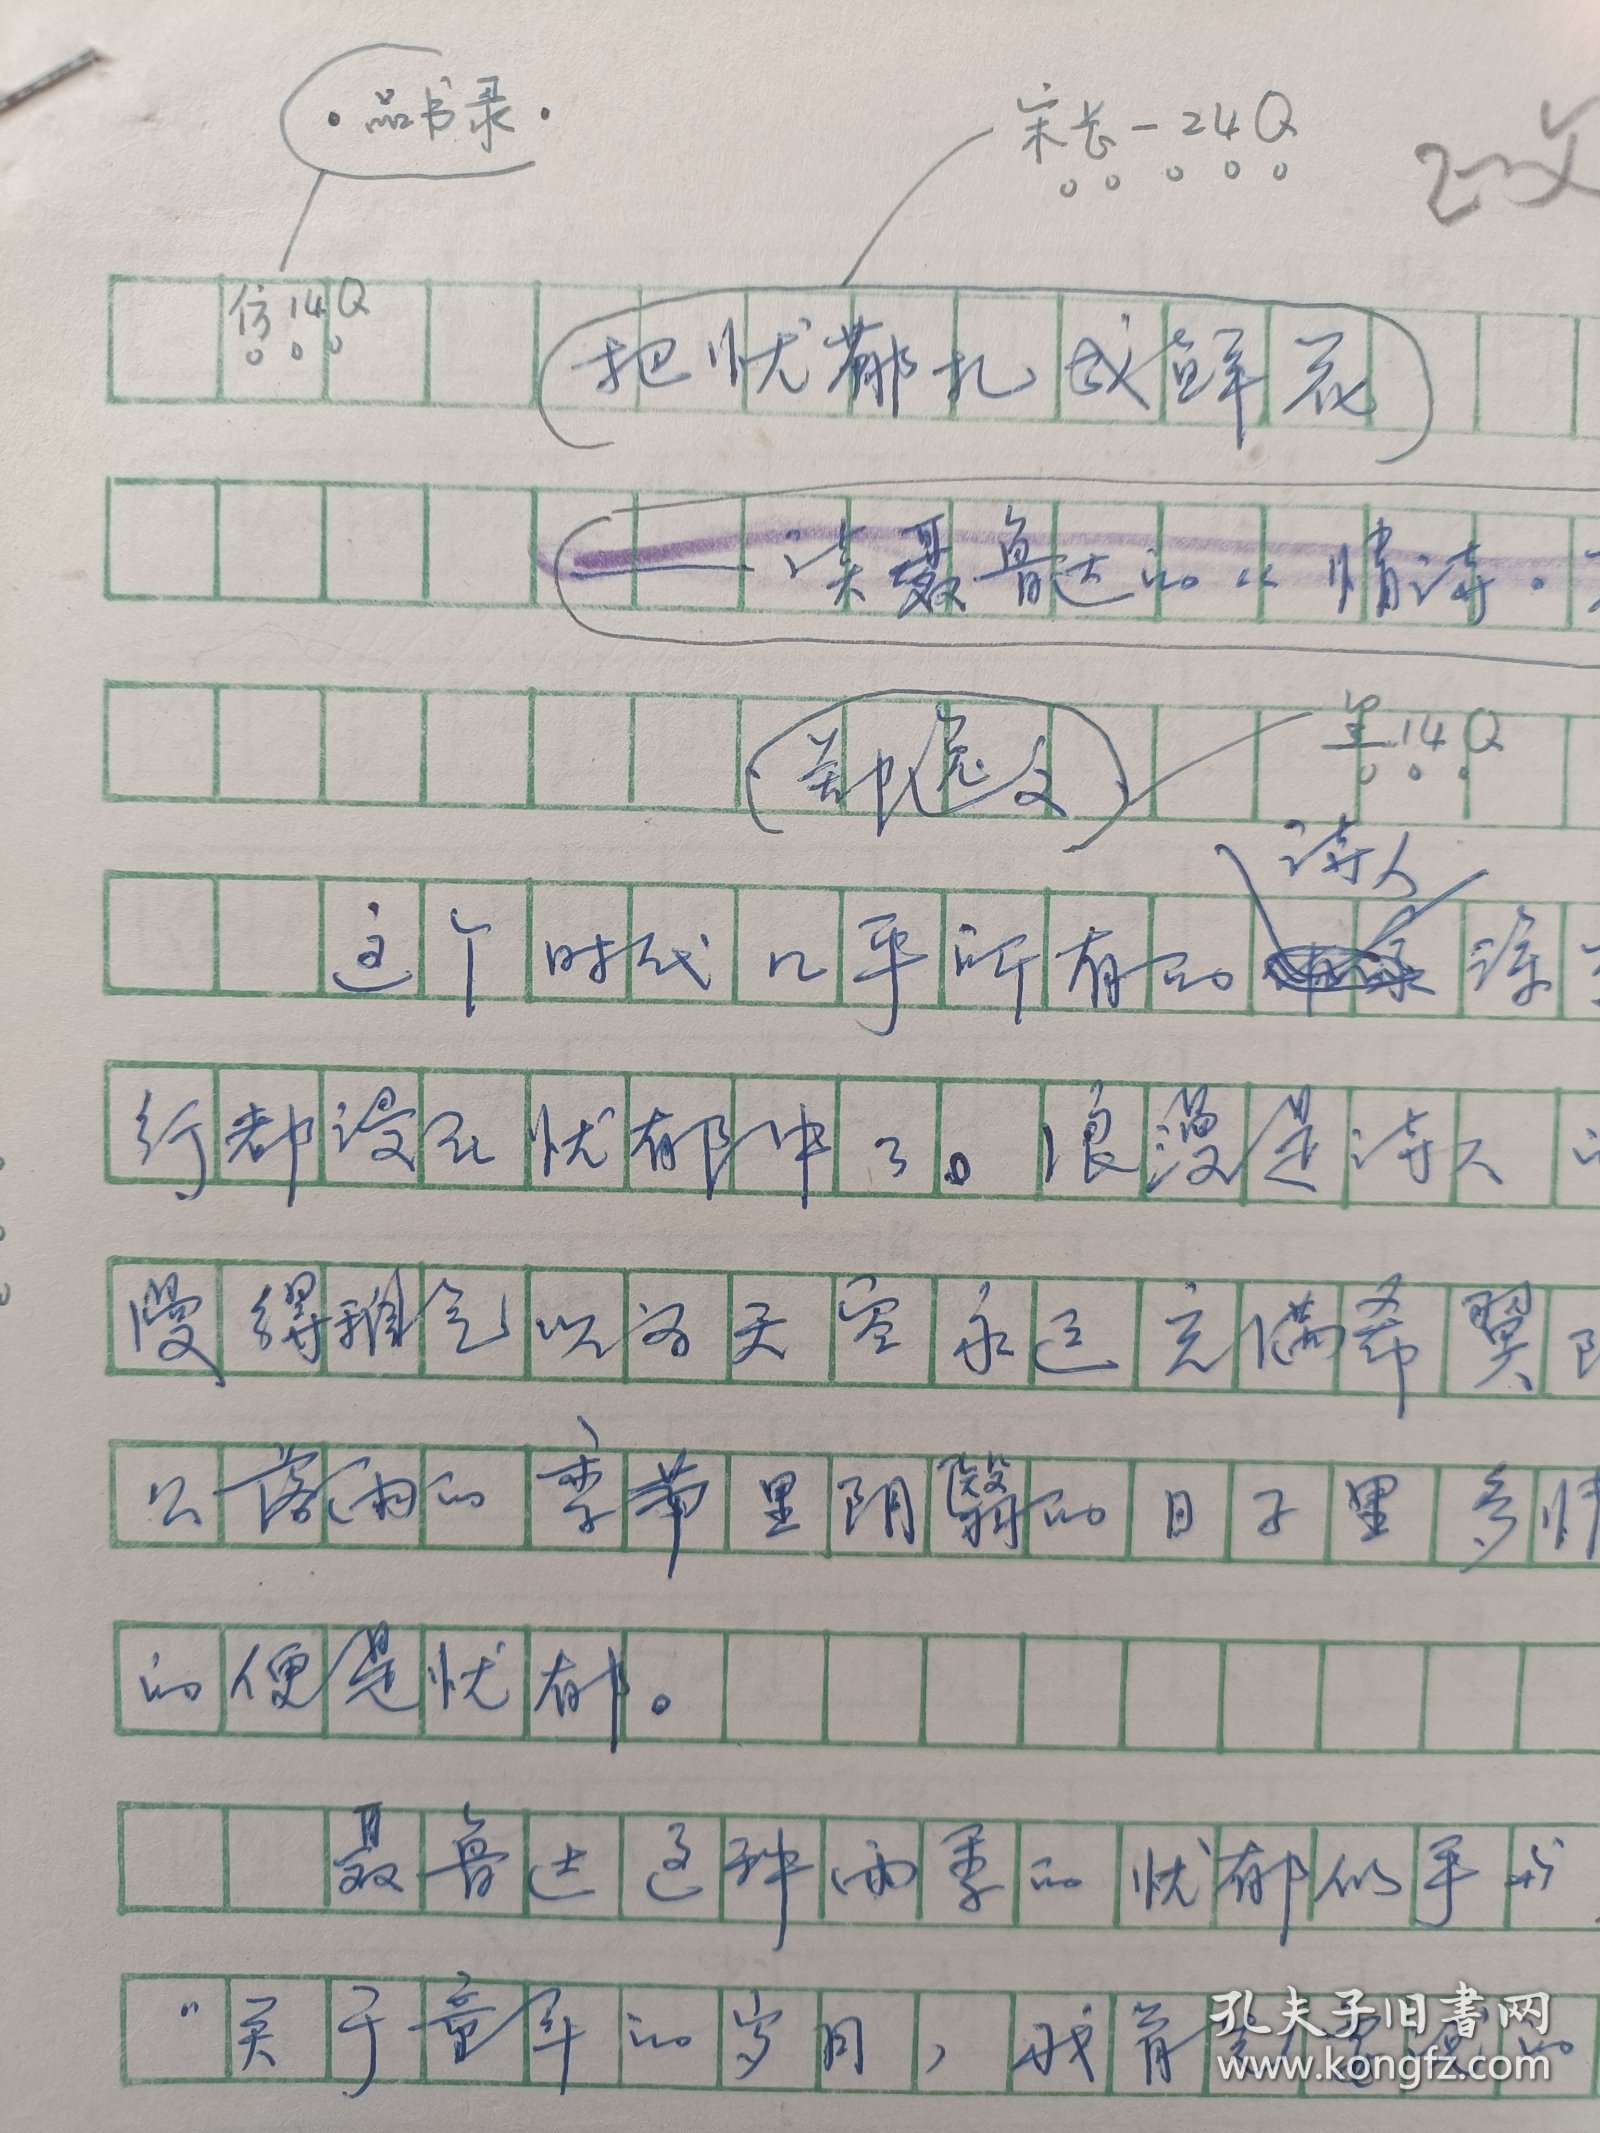 ·品书录·
宋长-24Q
仿14Q
把忧郁扎成鲜花
——读聂鲁达的《情诗·
14Q
诗人
这个时代几乎所有的
行都浸在忧郁中了。浪漫是诗人
漫得稚气以为天空永远充满希冀
公落雨的季节里阴翳的日子里多情
的便是忧郁。
聂鲁达这种雨季的忧郁似乎
“关于童年的岁月，我
孔夫子旧書网
www.kongfz.com